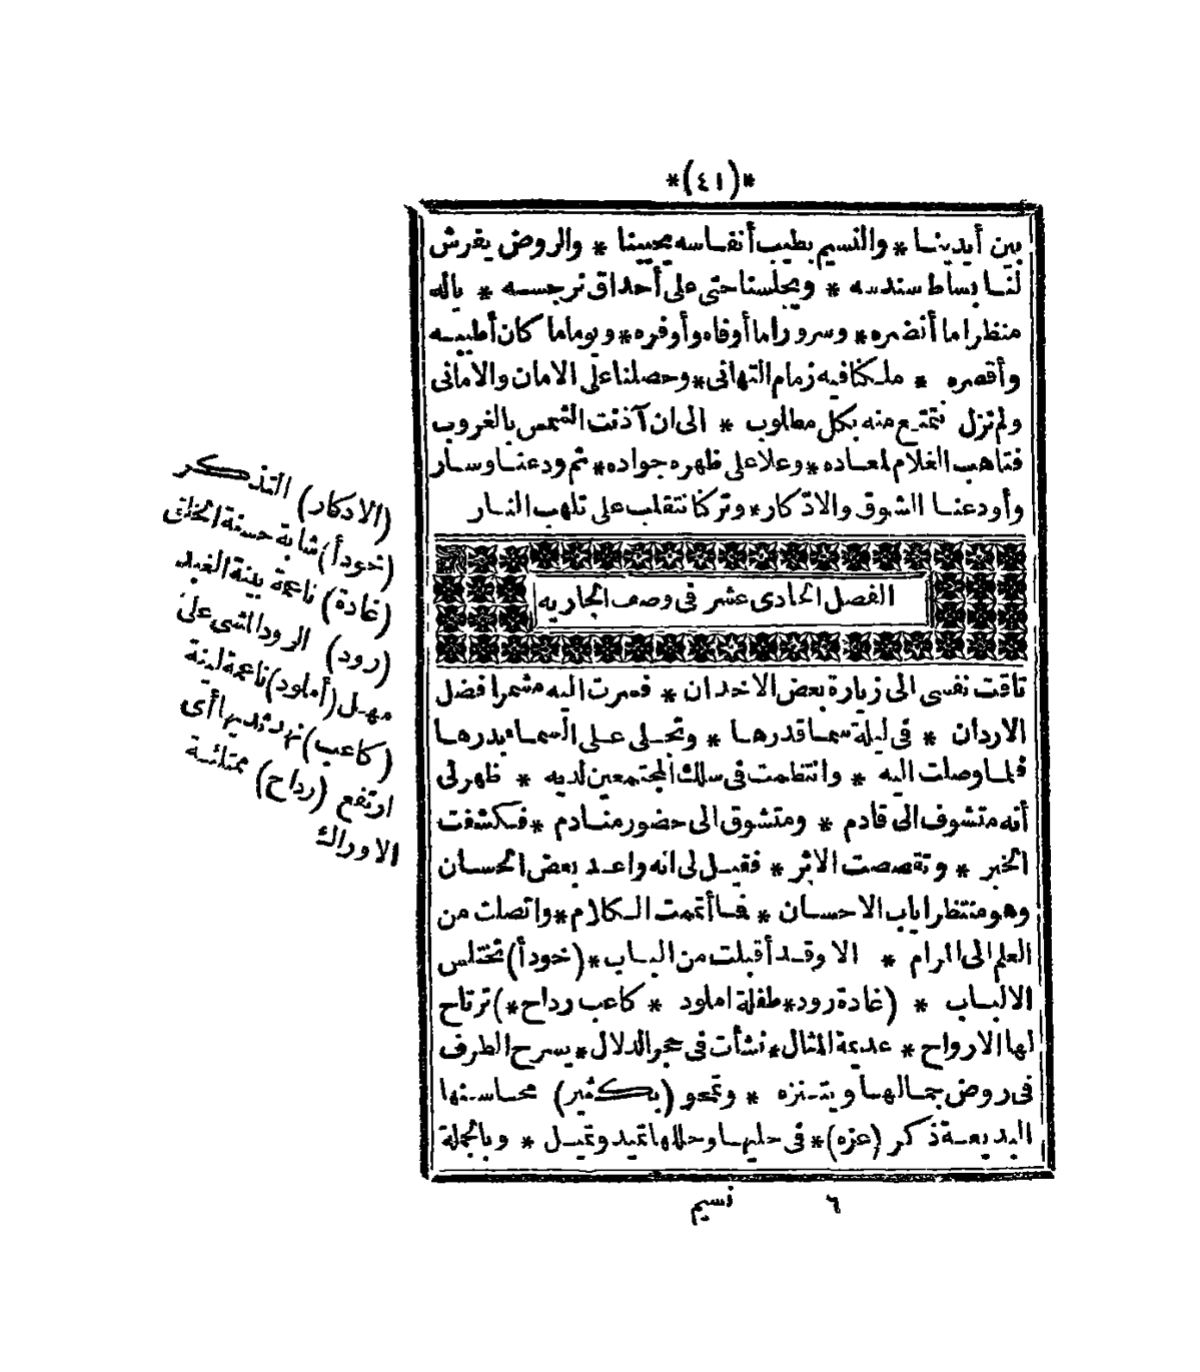 *(٤١)*
بين أيدينا * والنسيم بطيب أنفاسه يحيينا * والروض يفرش
لنا بساط سندسه * ويجلسنا حتى على أحداق نرجسه * ياله
منظرا ما أنضره * وسرورا ما أوفاه وأوفره * ويوما ما كان أطيبه
وأقصره * ملكنا فيه زمام التهانى * وحصلنا على الامان والأمانى
ولم نزل نتمتع منه بكل مطلوب * الى ان آذنت الشمس بالغروب
فتاهب الغلام لمعاده * وعلا على ظهره جواده * ثم ودعنا وسار
وأودعنا الشوق والادّكار * وتركنا نتقلب على تلهب النار
الفصل الحادى عشر فى وصف الجاريه
تاقت نفسى الى زيارة بعض الاخدان * فسرت اليه مشمرا فضل
الاردان * فى ليلة سما قدرها * وتحلى على السماء بدرها
فلما وصلت اليه * وانتظمت فى سلك المجتمعين لديه * ظهر لى
أنه متشوف الى قادم * ومتشوق الى حضور منادم * فكشفت
الخبر * وتقصصت الاثر * فقيل لى انه واعد بعض الحسان
وهو منتظر اياب الاحسان * فما أتممت الكلام * واتصلت من
العلم الى المرام * الا وقد أقبلت من الباب * (خودأ) تختلس
الالباب * (غادة رود * طفلة املود * كاعب رداح *) ترتاح
لها الارواح * عديمة المثال * نشأت فى حجر الدلال * يسرح الطرف
فى روض جمالها ويتنزه * وتمحو (بكثير) محاسنها
البديعة ذكر (عزه) * فى حليها وحللها تميد وتميل * وبالجملة
٦ نسيم
(الادكار) التذكر
(خودأ) شابة حسنة الخلق
(غادة) ناعمة بينة الغيد
(رود) الرود المشى على
مهل (أملود) ناعمة لينة
(كاعب) نهد ثديها أى
ارتفع (رداح) ممتلئة
الاوراك